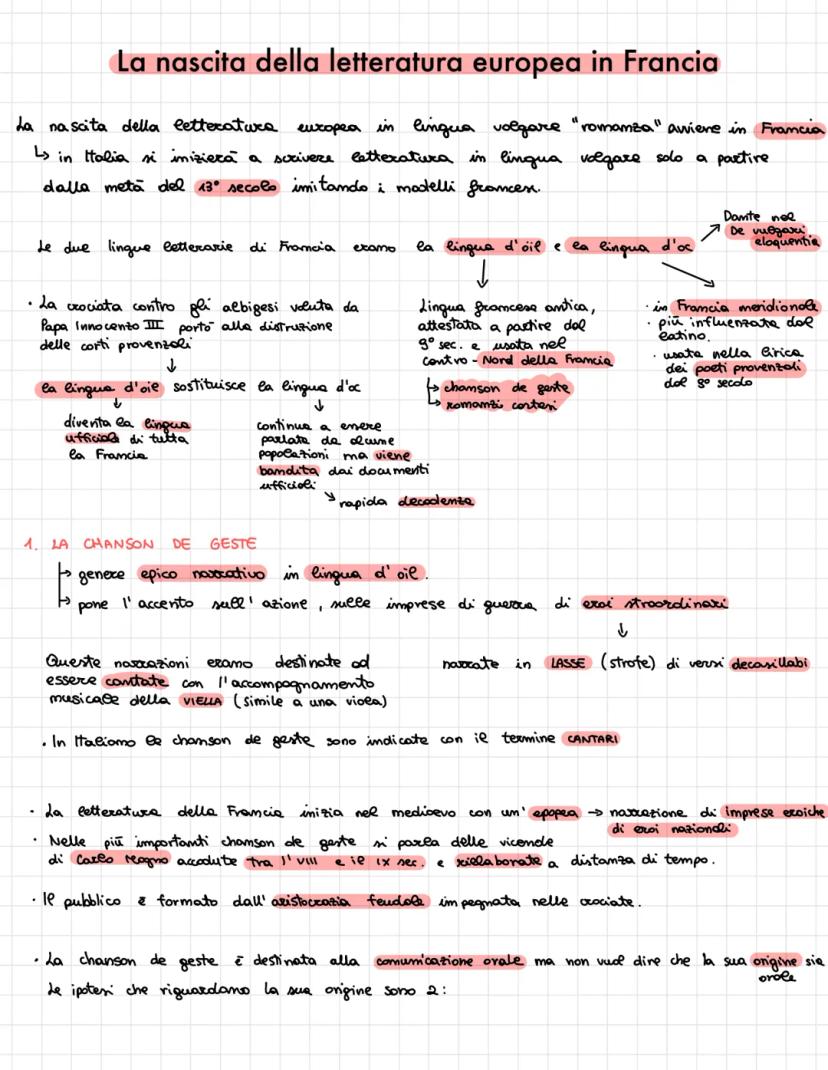 La nascita della letteratura europea in Francia
La nascita della letteratura europea in lingua volgare "romanza" avviene in Francia
↳ in Italia si inizierà a scrivere letteratura in lingua volgare solo a partire
dalla metà del 13° secolo imitando i modelli francesi.
Dante nel
De vulgari
eloquentia
Le due lingue letterarie di Francia erano la lingua d'oil e la lingua d'oc
• La crociata contro gli albigesi voluta da
Papa Innocenzo III portò alla distruzione
delle corti provenzali
la lingua d'oil sostituisce la lingua d'oc
diventa la lingua
ufficiale di tutta
la Francia
continua a essere
parlata da alcune
popolazioni ma viene
bandita dai documenti
ufficiali
rapida decadenza
Lingua francese antica,
attestata a partire dal
9° sec. e usata nel
centro - Nord della Francia
↳ chanson de geste
↳ romanzi cortesi
• in Francia meridionale
• più influenzata dal
latino.
• usata nella lirica
dei poeti provenzali
dal 9° secolo
1. LA CHANSON DE GESTE
↳ genere epico narrativo in lingua d'oil.
↳ pone l'accento sull'azione, sulle imprese di guerra di eroi straordinari
narrate in LASSE (strofe) di versi decasillabi
Queste narrazioni erano destinate ad
essere cantate con l'accompagnamento
musicale della VIELLA (simile a una viola)
• In Italiano le chanson de geste sono indicate con il termine CANTARI
• La letteratura della Francia inizia nel medioevo con un'epopea → narrazione di imprese eroiche
di eroi nazionali
• Nelle più importanti chanson de geste si parla delle vicende
di Carlo Magno accadute tra l'VIII e il IX sec. e rielaborate a distanza di tempo.
• Il pubblico è formato dall'aristocrazia feudale impegnata nelle crociate.
• La chanson de geste è destinata alla comunicazione orale ma non vuol dire che la sua origine sia
orale
Le ipotesi che riguardano la sua origine sono 2: